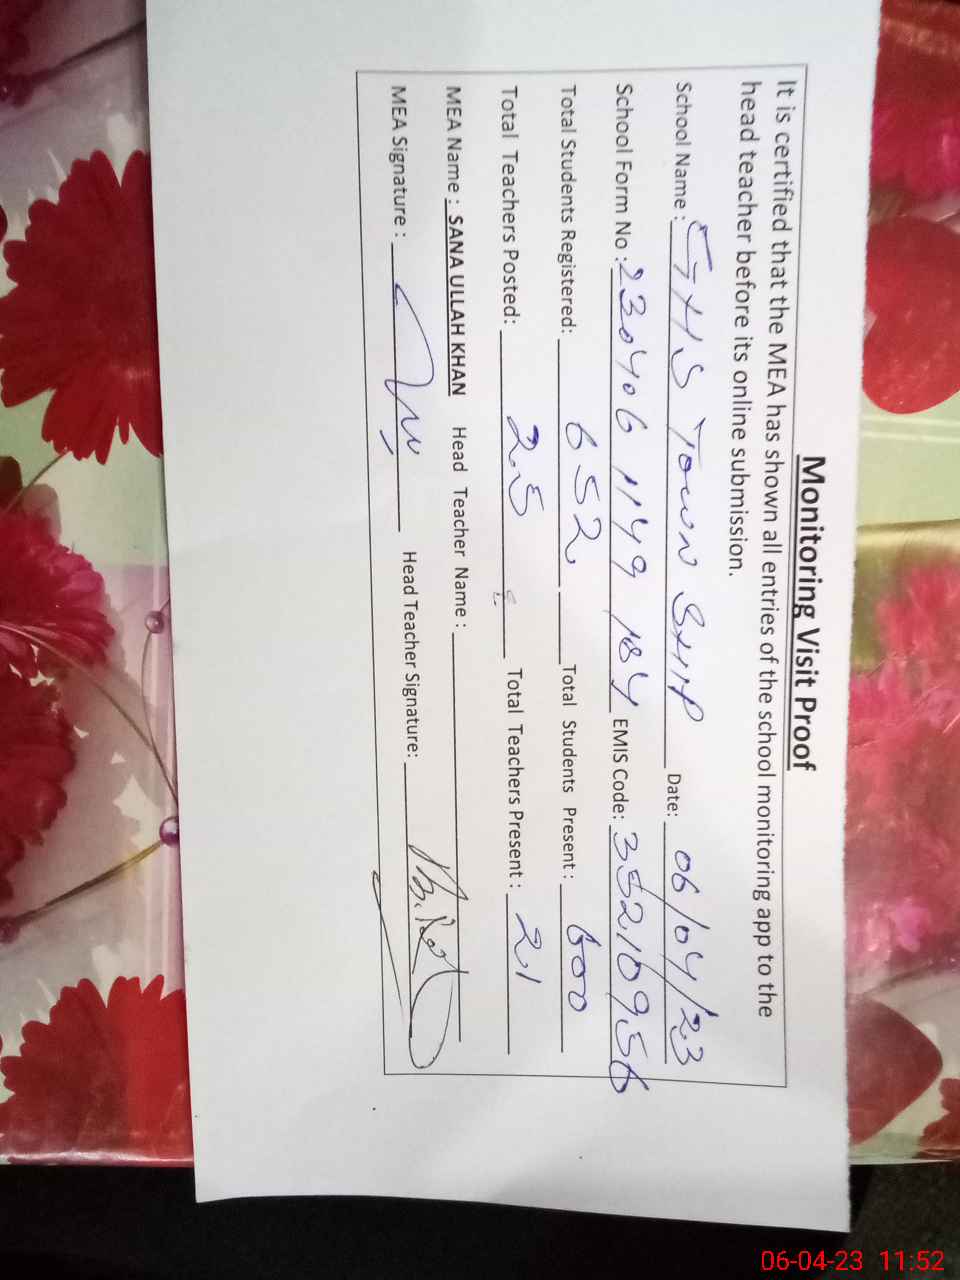 Monitoring Visit Proof
It is certified that the MEA has shown all entries of the school monitoring app to the
head teacher before its online submission.
School Name : GHS TOWN SHIP Date: 06/04/23
School Form No : 230406 1149 184 EMIS Code: 35210956
Total Students Registered: 652 Total Students Present : 600
Total Teachers Posted: 25 Total Teachers Present : 21
MEA Name : SANA ULLAH KHAN Head Teacher Name :
MEA Signature : Head Teacher Signature:
06-04-23 11:52